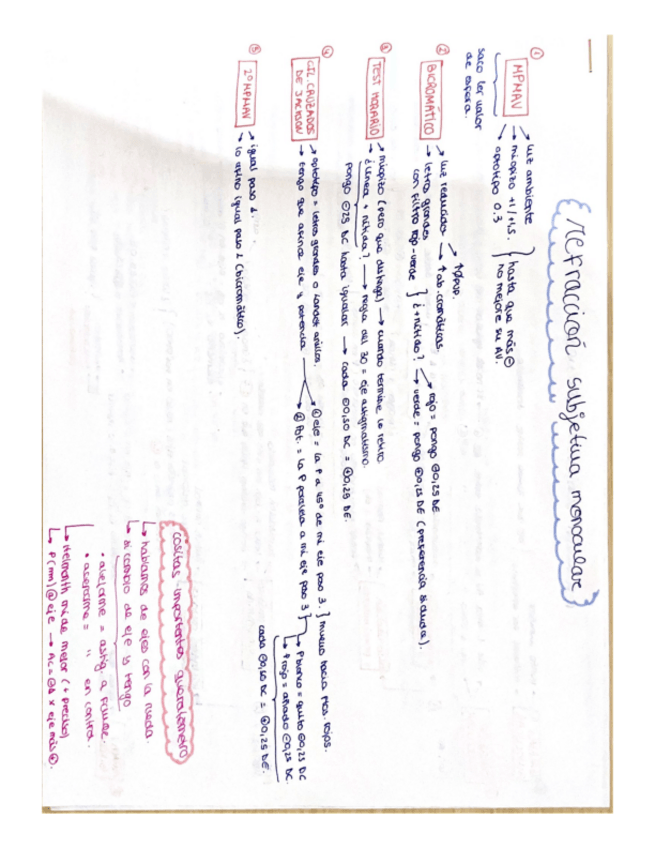 refracción subjetiva monocular
① MPMAV
→ luz ambiente
→ miopizo +1/+1.5.
→ optotipo 0.3
hasta que más ⊖ no mejore su AV.
saco 1er valor de esfera.
② BICROMÁTICO
→ luz reducida → ↑∅pup. → ↑ab. cromáticas.
→ letras grandes con filtro rojo-verde
¿+nítido?
→ rojo = pongo ⊖0,25 DE
→ verde = pongo ⊕0,25 DE (preferencia si duda).
③ TEST HORARIO
→ miopizo (pero que distinga) → cuando termine, lo retiro
→ ¿línea + nítida? → regla del 30 = eje astigmatismo.
pongo ⊖25 DC hasta igualar → cada ⊖0,50 DC = ⊕0,25 DE.
④ CIL. CRUZADOS DE JACKSON
→ optotipo = letras grandes o Landolt anillos.
→ tengo que afinar eje y potencia
① eje = la P a 45º de mi eje paso 3. } muevo hacia ptos. rojos.
② Pot. = la P paralela a mi eje paso 3
→ P blanco = quito ⊖0,25 DC
→ P rojo = añado ⊖0,25 DC.
cada ⊖0,50 DC = ⊕0,25 DE.
⑤ 2º MPMAV
→ igual paso 1.
→ lo afino igual paso 2 (bicromático).
cositas importantes queratómetro
↳ hablamos de ejes con la rueda.
↳ si cambio de eje y tengo
• aveforme = astig. a favor.
• aseforme = " en contra.
↳ Helmholtz mide mejor (+ preciso)